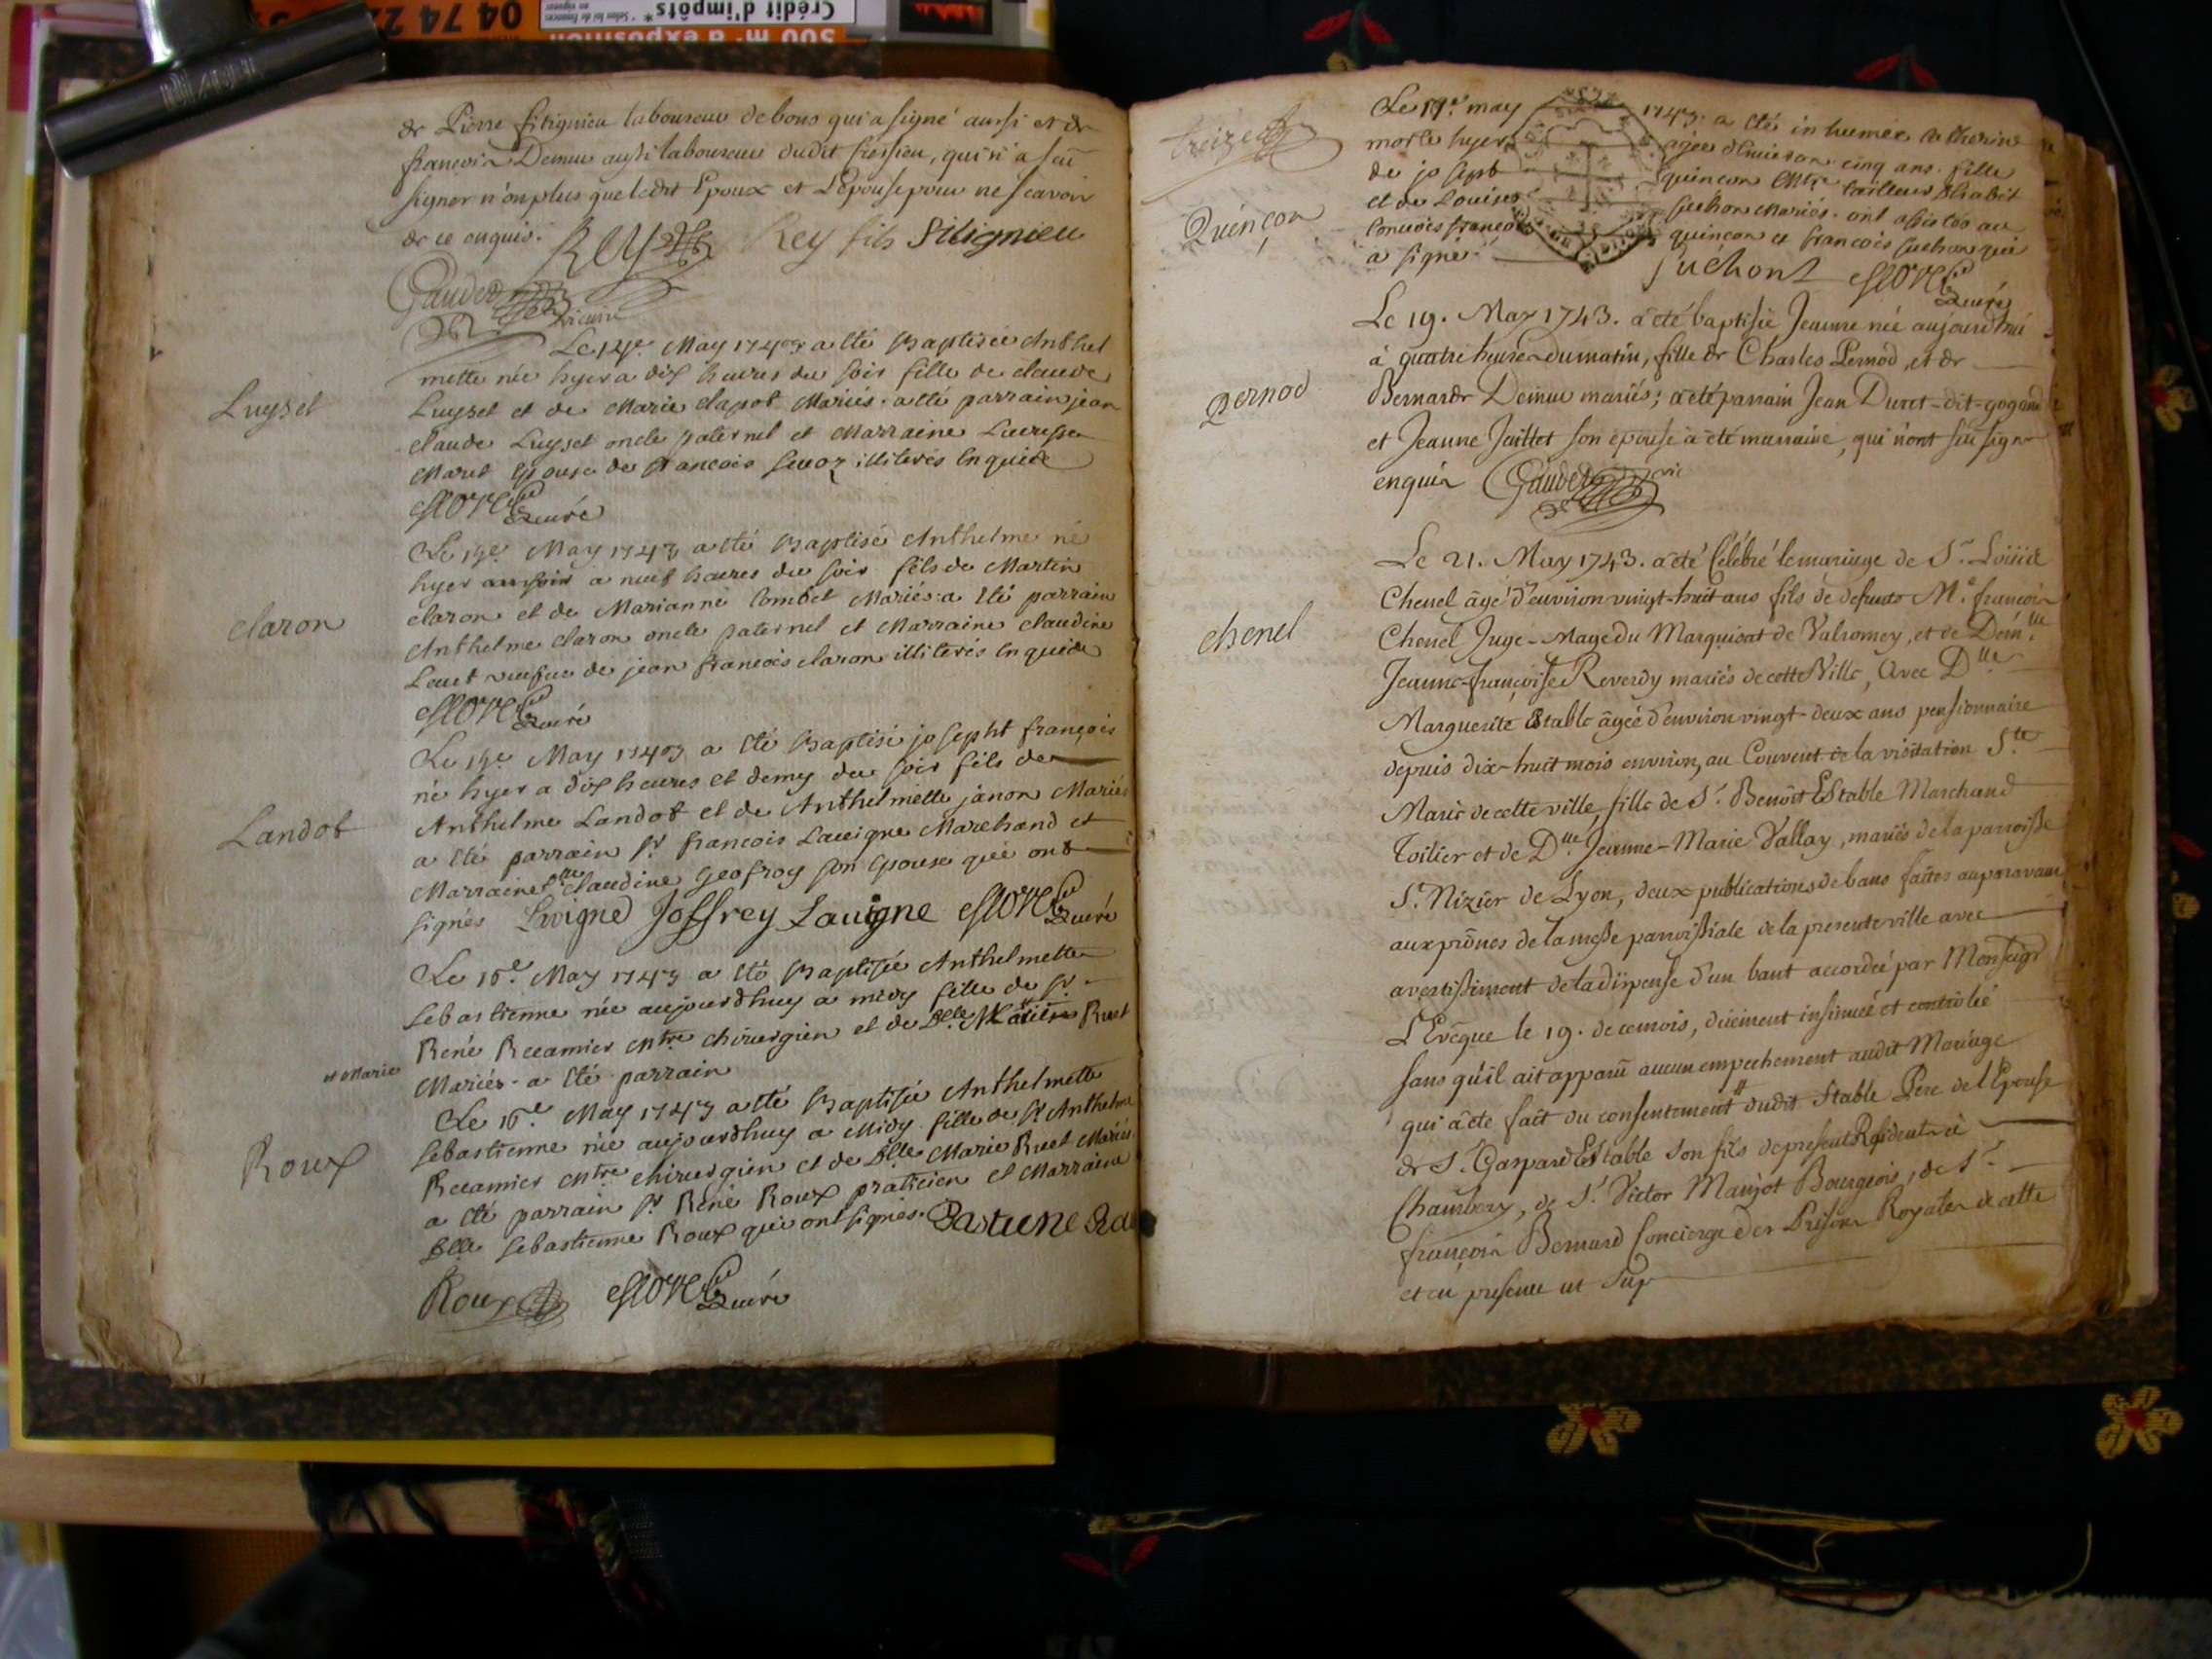 de Pierre Sitignieu laboureur de bons qui a signé aussi et de
francois Demeure aussi laboureur dudit Cressieu, qui n'a sçu
signer n'onplus que ledit Epoux et L'epouse pour ne scavoir
de ce enquis. REY Rey fils Sitignieu
Gaudet vicaire
Le 14e. May 1743 a été Baptisée Anthel
mette née hyer a dix heures du soir fille de claude
Luyset
Luyset et de Marie clapot Mariés. a été parrain jean
claude Luyset oncle paternel et Marraine
Maret Epouse de francois illiterés Enquide
curé
Le 15e. May 1743 a été Baptisé Anthelme né
hyer a nuit heures du soir fils de Martin
claron
claron et de Marianne Combet Mariés. a été parrain
Anthelme claron oncle paternel et Marraine claudine
veufue de jean francois claron illiterés Enquide
curé
Le 15e. May 1743 a été Baptisé josepht françois
né hyer a dix heures et demy du soir fils de
Landot
Anthelme Landot et de Anthelmette janon Mariés
a été parrain Sr francois Lauigne Marchand et
Marraine dlle claudine geofroy son Epouse qui ont
signés Lavigne Joffrey Lauigne curé
Le 16e May 1743 a été Baptisée Anthelmette
Sebastienne née aujourdhuy a midy fille de Sr
René Recamier Mtre chirurgien et de Dlle Ruet
et Marie
Mariés. a été parrain
Le 16e May 1743 a été Baptisée Anthelmette
Sebastienne née aujourdhuy a Midy fille de Sr Anthelme
Roux
Recamier Mtre chirurgien et de Dlle Marie Ruet Mariés
a été parrain Sr René Roux praticien et Marraine
Dlle Sebastienne Roux qui ont signés.
Roux curé
treize
Le 19e. may 1743. a été inhumée
morte hyer agée d'environ cinq ans. fille
de josept quinçon Mtre tailleur d'habit
Quinçon
et de Louise Suchon Mariés. ont assistés au
convois françois quinçon et francois suchon qui
a signé. Suchont curé
Le 19. May 1743. a été baptisée Jeanne née aujourd'hui
à quatre heures du matin, fille de Charles Pernod, et de
Pernod
Bernarde Demeure mariés; a été parrain Jean Duret-dit-gogand
et Jeanne Jaillet son épouse a été marraine, qui n'ont sçu signer
enquis Gaudet vic
Le 21. May 1743. a été Célébré le mariage de Sr. Loüis
Chenel âgé d'environ vingt-huit ans fils de defunts Me. françois
chenel
Chenel Juge-Mage du Marquisat de Valromey, et de Demlle.
Jeanne-françoise Reverdy mariés de cette Ville, Avec Dlle
Marguerite Estable âgée d'environ vingt-deux ans pensionnaire
depuis dix-huit mois environ, au Couvent de la visitation Ste
Marie de cette ville, fille de Sr. Benoît Estable Marchand
Toilier et de Dlle. Jeanne-Marie Vallay, mariés de la parroisse
St. Nizier de Lyon, deux publications de bans faites auparavant
aux prônes de la messe parroissiale de la presente ville avec
avertissement de la dispense d'un bant accordée par Monseigr
L'Evêque le 19. de ce mois, düement insinuée et contrôlée
sans qu'il ait apparû aucun empechement audit Mariage
qui a été fait du consentement dudit Stable Pere de l'Epouse
de Sr. Gaspard Estable son fils de present Resident à
Chambery, de Sr. Victor Maujot Bourgeois, de Sr.
françois Bernard Concierge des Prisons Royales de cette
et en presence ut Sup